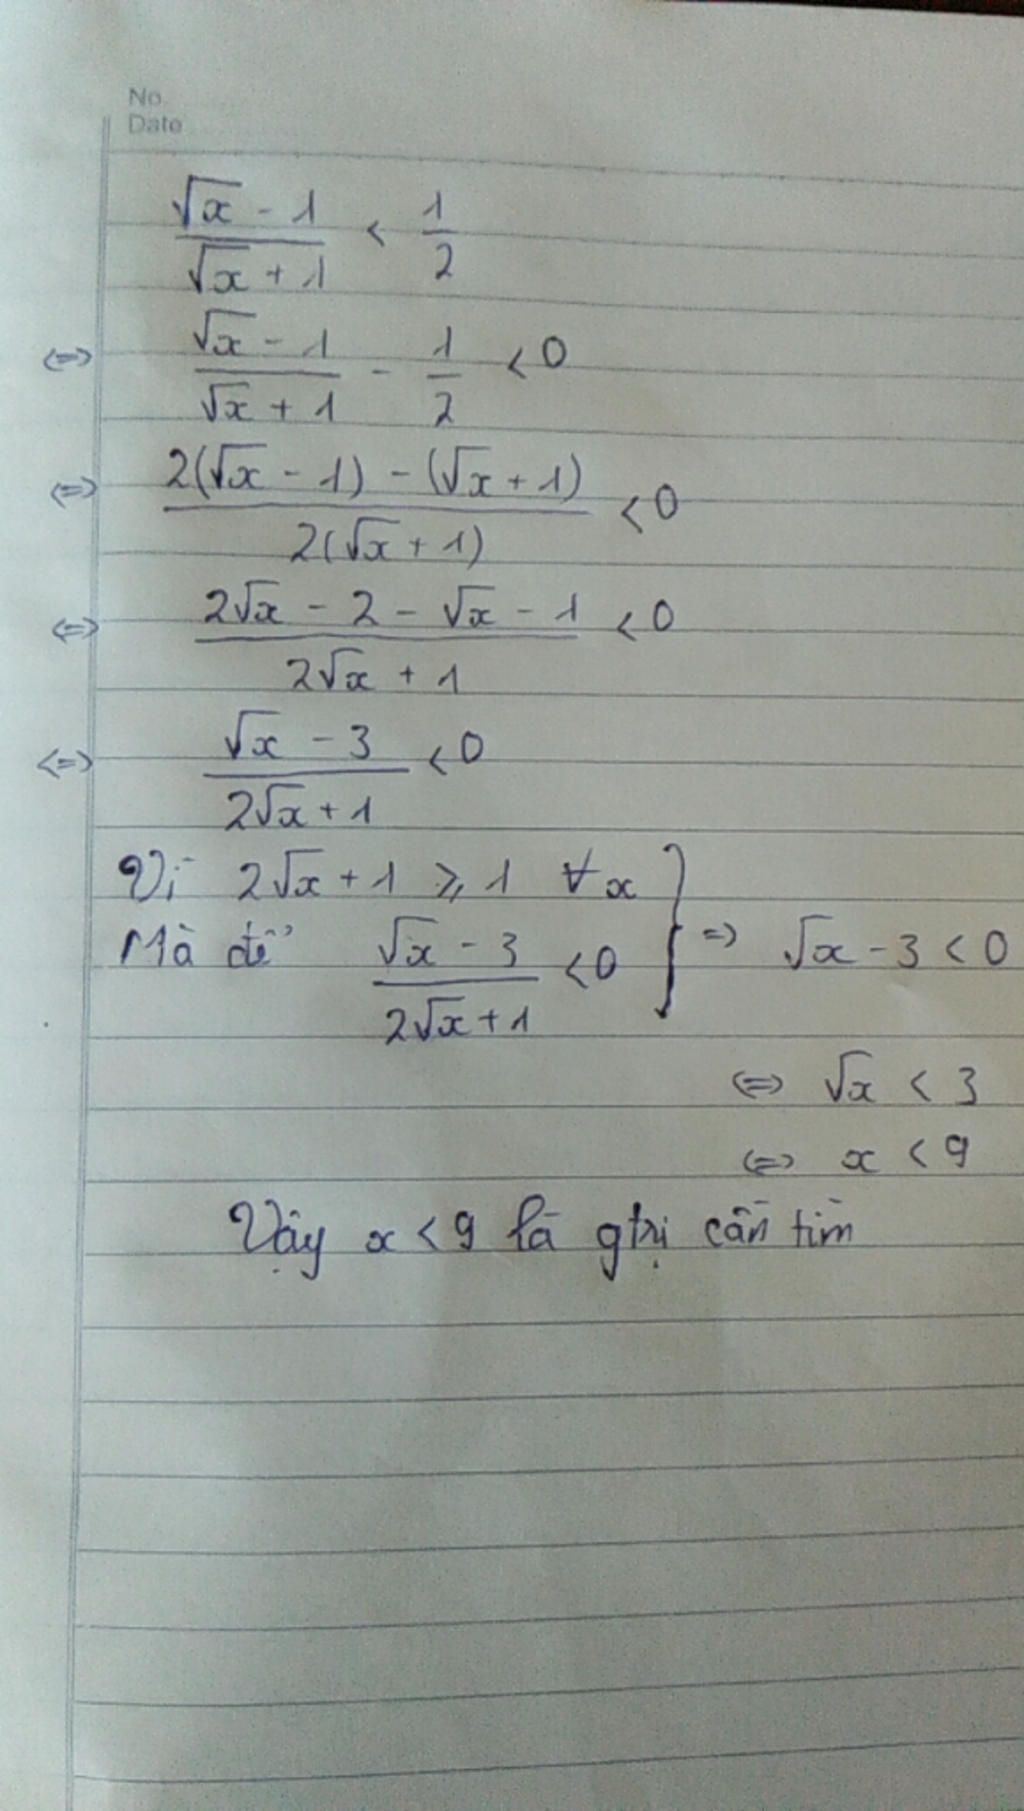 No
Date
(√x - 1)/(√x + 1) < 1/2
<=> (√x - 1)/(√x + 1) - 1/2 < 0
<=> (2(√x - 1) - (√x + 1))/(2(√x + 1)) < 0
<=> (2√x - 2 - √x - 1)/(2√x + 1) < 0
<=> (√x - 3)/(2√x + 1) < 0
Vì 2√x + 1 ⩾ 1 ∀x
Mà để (√x - 3)/(2√x + 1) < 0 } => √x - 3 < 0
<=> √x < 3
<=> x < 9
Vậy x < 9 là gtrị cần tìm